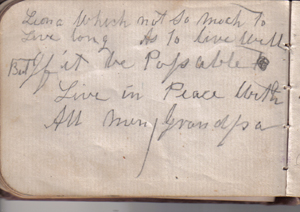 Liona Whish not So much To
Live long As To live Well
But If it be Possable to
Live in Peace With
All men Grandpa